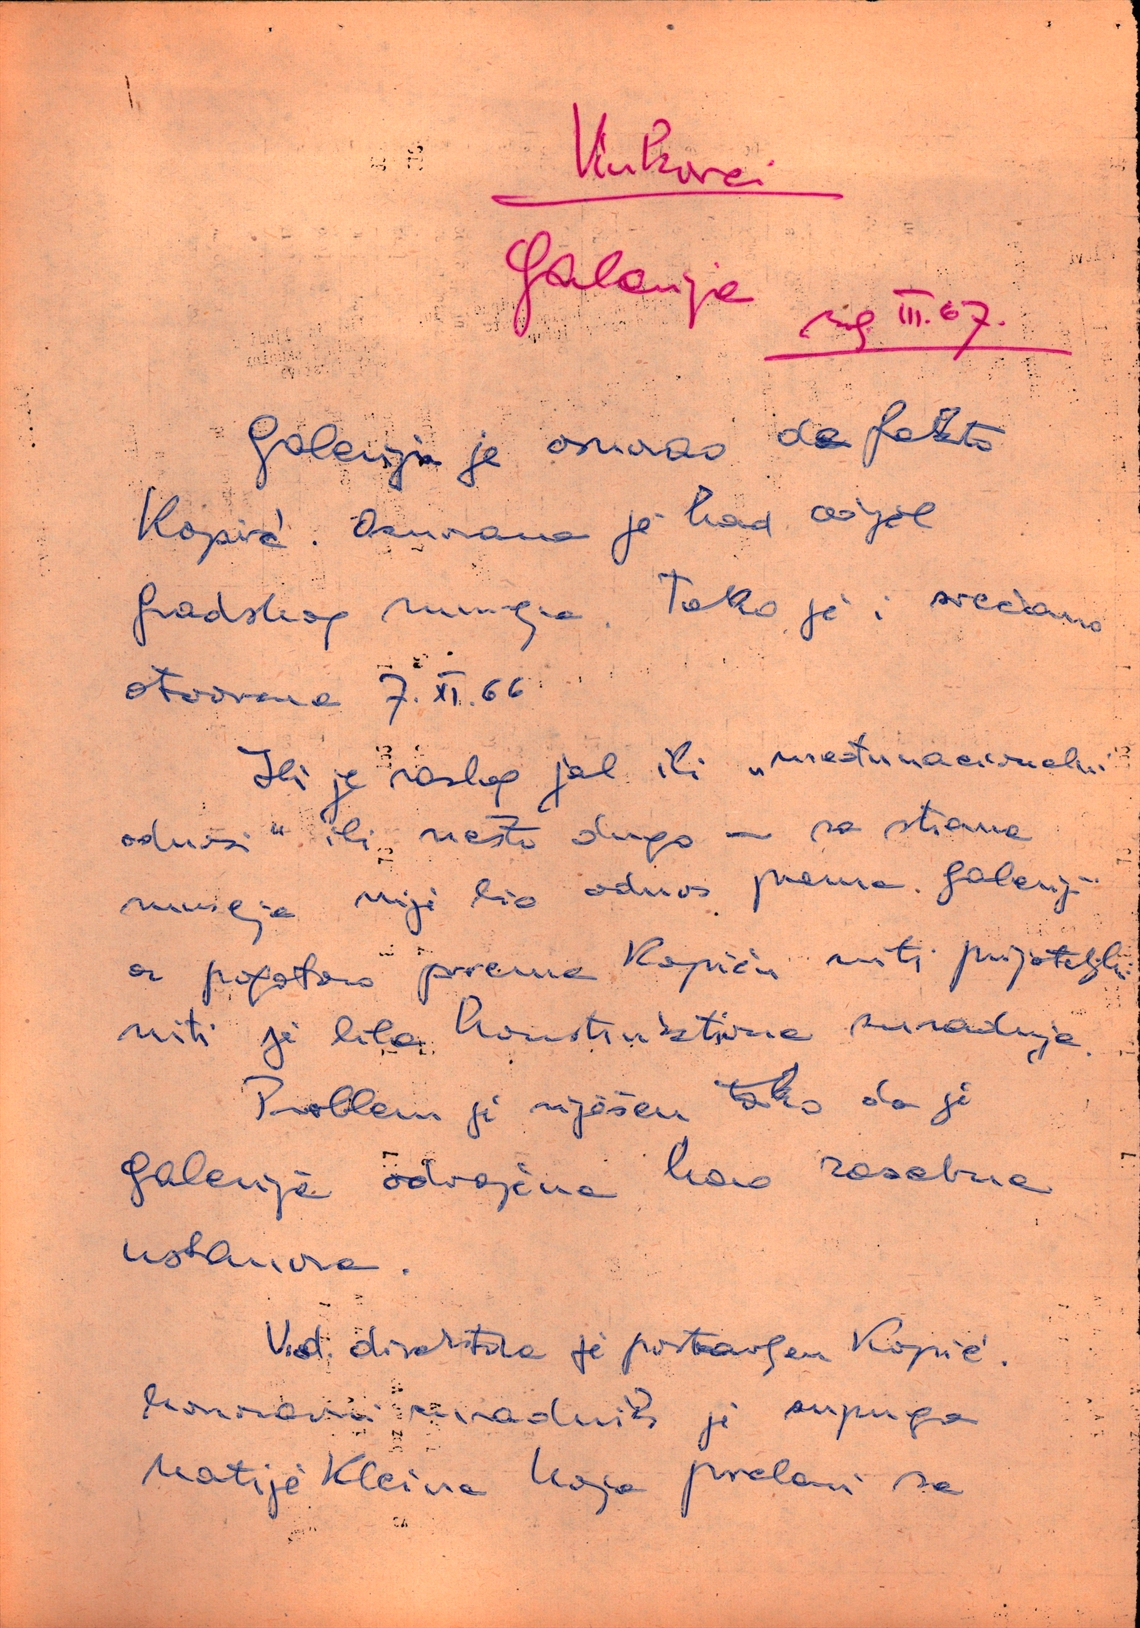 Vinkovci
Galerija
III. 67.
Galerija je osnovao de fakto
Kopić. Osnovana je kao odjel
Gradskog muzeja. Tako je i svečano
otvorena 7. XI. 66
Ili je razlog jal ili „međunacionalni
odnosi" ili nešto drugo — sa strane
muzeja nije bio odnos prema Galeriji
a pogotovo prema Kopiću niti prijateljski
niti je bila konstruktivna suradnja.
Problem je riješen tako da je
Galerija odvojena kao zasebna
ustanova.
V.d. direktora je postavljen Kopić.
honorarni suradnik je supruga
Matije Kleina koja prelazi sa